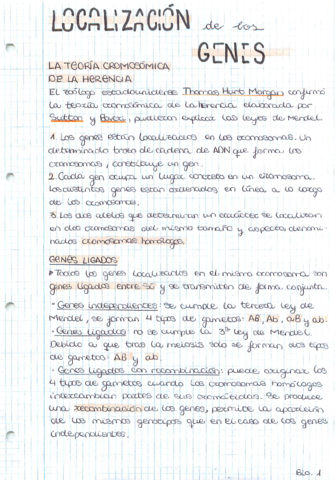 LOCALIZACIÓN de los
GENES
LA TEORÍA CROMOSÓMICA
DE LA HERENCIA
El zoólogo estadounidense Thomas Hunt Morgan confirmó
la teoría cromosómica de la herencia elaborada por
Sutton y Boveri, pudieron explicar las leyes de Mendel.
1. Los genes están localizados en los cromosomas. Un
determinado trozo de cadena de ADN que forma los
cromosomas, constituye un gen.
2. Cada gen ocupa un lugar concreto en un cromosoma.
Los distintos genes están ordenados en línea a lo largo
de los cromosomas.
3. Los dos alelos que determinan un carácter se localizan
en dos cromosomas del mismo tamaño y aspecto denomi-
nados cromosomas homólogos.
GENES LIGADOS
Todos los genes localizados en el mismo cromosoma son
genes ligados entre sí y se transmiten de forma conjunta.
· Genes independientes: se cumple la tercera ley de
Mendel, se forman 4 tipos de gametos: AB, Ab, aB y ab.
· Genes ligados: no se cumple la 3ª ley de Mendel.
Debido a que tras la meiosis solo se forman dos tipos
de gametos: AB y ab.
· Genes ligados con recombinación: puede originar los
4 tipos de gametos cuando los cromosomas homólogos
intercambian partes de sus cromátidas. Se produce
una recombinación de los genes, permite la aparición
de los mismos genotipos que en el caso de los genes
independientes.
Bio. 1